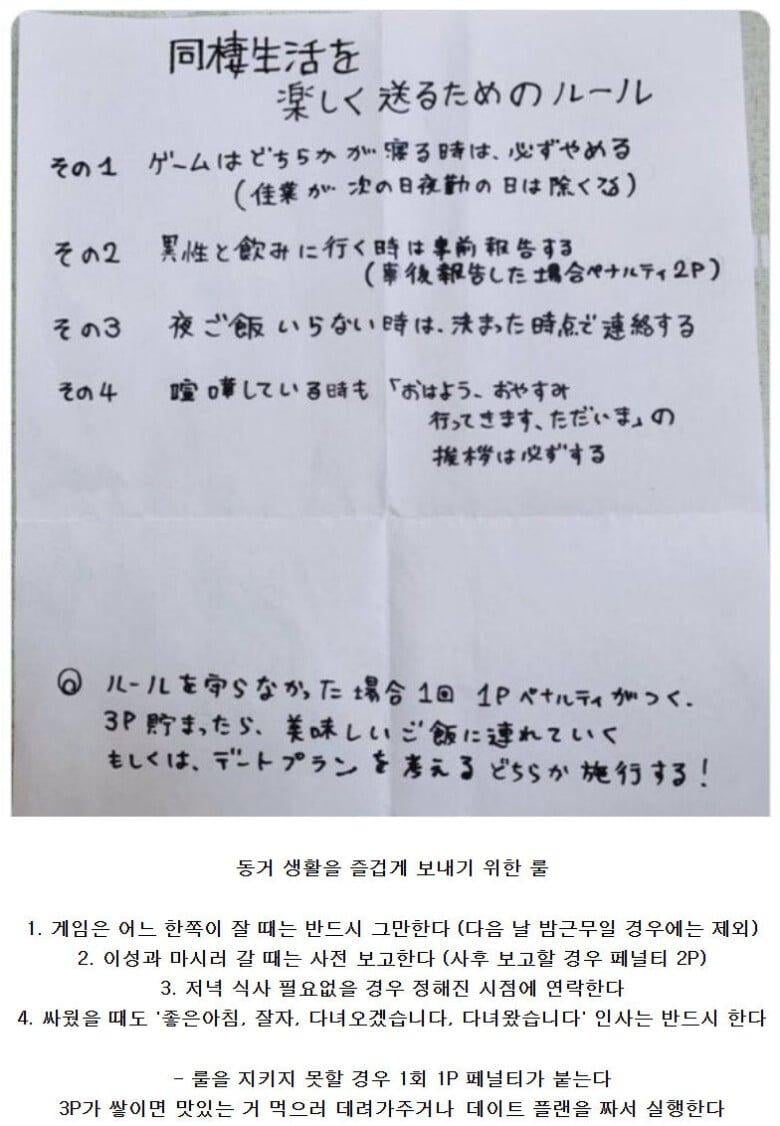 同棲生活を
楽しく送るためのルール
その1 ゲームはどちらかが寝る時は、必ずやめる
(佳業が次の日夜勤の日は除くる)
その2 異性と飲みに行く時は事前報告する
(事後報告した場合ペナルティ2P)
その3 夜ご飯いらない時は、決まった時点で連絡する
その4 喧嘩している時も「おはよう、おやすみ
行ってきます、ただいま」の
挨拶は必ずする
ルールを守らなかった場合1回 1Pペナルティがつく、
3P貯まったら、美味しいご飯に連れていく
もしくは、デートプランを考えるどちらか施行する!
동거 생활을 즐겁게 보내기 위한 룰
1. 게임은 어느 한쪽이 잘 때는 반드시 그만한다 (다음 날 밤근무일 경우에는 제외)
2. 이성과 마시러 갈 때는 사전 보고한다 (사후 보고할 경우 페널티 2P)
3. 저녁 식사 필요없을 경우 정해진 시점에 연락한다
4. 싸웠을 때도 '좋은아침, 잘자, 다녀오겠습니다, 다녀왔습니다' 인사는 반드시 한다
- 룰을 지키지 못할 경우 1회 1P 페널티가 붙는다
3P가 쌓이면 맛있는 거 먹으러 데려가주거나 데이트 플랜을 짜서 실행한다